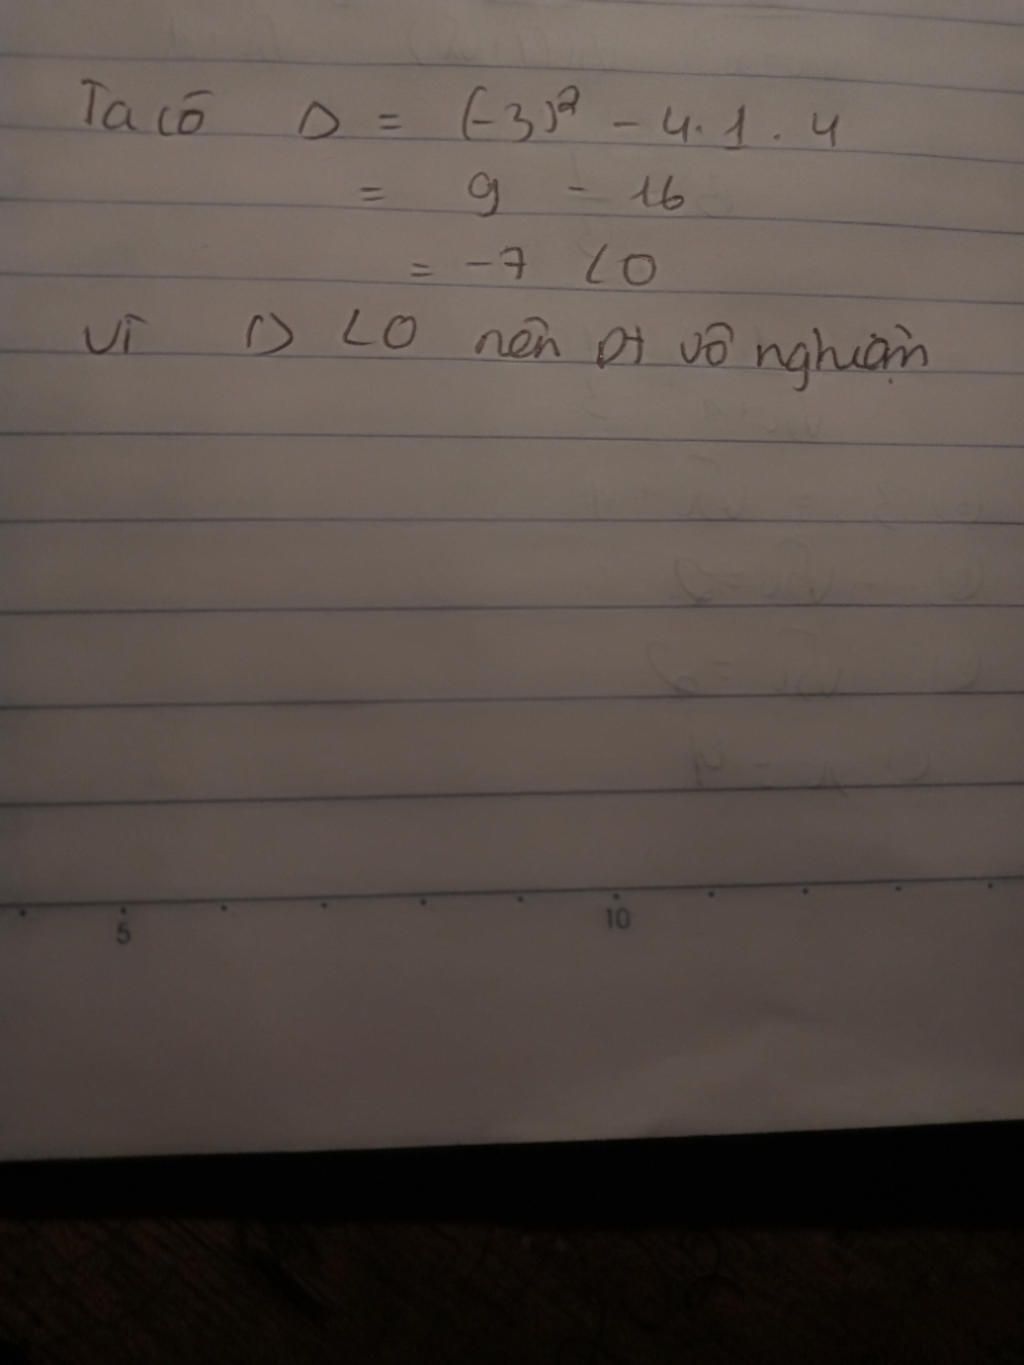 Ta có Δ = (-3)² - 4.1.4
= 9 - 16
= -7 < 0
Vì Δ < 0 nên pt vô nghiệm
5 10